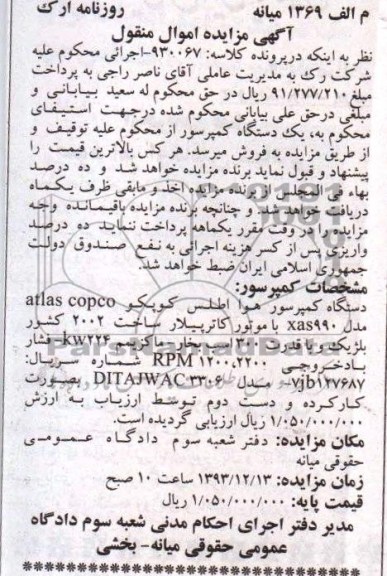 م الف ۱۳۶۹ میانه روزنامه ارک
آگهی مزایده اموال منقول
نظر به اینکه درپرونده کلاسه: ۹۳۰۰۶۷-اجرائی محکوم علیه
شرکت رک به مدیریت عاملی آقای ناصر راجی به پرداخت
مبلغ ۹۱/۲۷۷/۲۱۰ ریال در حق محکوم له سعید بیابانی و
مبلغی درحق علی بیابانی محکوم شده درجهت استیفای
محکوم به، یک دستگاه کمپرسور از محکوم علیه توقیف و
از طریق مزایده به فروش میرسد، هر کس بالاترین قیمت را
پیشنهاد و قبول نماید برنده مزایده خواهد شد و ده درصد
بهاء فی المجلس از برنده مزایده اخذ و مابقی ظرف یکماه
دریافت خواهد شد و چنانچه برنده مزایده باقیمانده وجه
مزایده را در وقت مقرر یکماهه پرداخت ننماید ده درصد
واریزی پس از کسر هزینه اجرائی به نفع صندوق دولت
جمهوری اسلامی ایران ضبط خواهد شد.
مشخصات کمپرسور:
دستگاه کمپرسور هوا اطلس کوپکو atlas copco
مدل xas۹۹۰ با موتور کاترپیلار ساخت ۲۰۰۲ کشور
بلژیک وبا قدرت ۳۰۰ اسب بخار- ماکزیمم kw۲۲۴-فشار
بادخروجی RPM ۱۲۰۰،۲۲۰۰ شماره سریال:
vjb۱۲۷۶۸۷- مدل DITAJWAC ۳۳۰۶ بصورت
کارکرده و دست دوم توسط ارزیاب به ارزش
۱/۰۵۰/۰۰۰/۰۰۰ ریال ارزیابی گردیده است.
مکان مزایده: دفتر شعبه سوم دادگاه عمومی
حقوقی میانه
زمان مزایده: ۱۳۹۳/۱۲/۱۳ ساعت ۱۰ صبح
قیمت پایه: ۱/۰۵۰/۰۰۰/۰۰۰ ریال
مدیر دفتر اجرای احکام مدنی شعبه سوم دادگاه
عمومی حقوقی میانه- بخشی